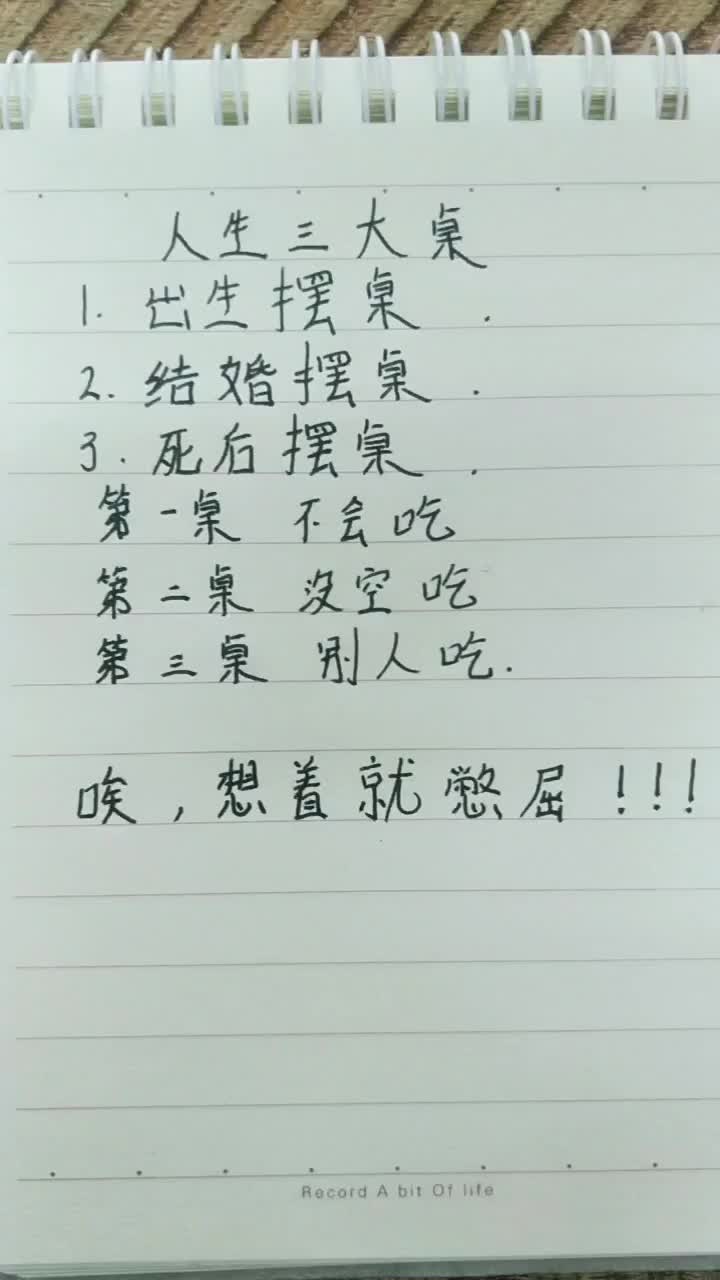 人生三大桌
1. 出生摆桌.
2. 结婚摆桌.
3. 死后摆桌.
第一桌 不会吃
第二桌 没空吃
第三桌 别人吃.
唉,想着就憋屈!!!
Record A bit Of life